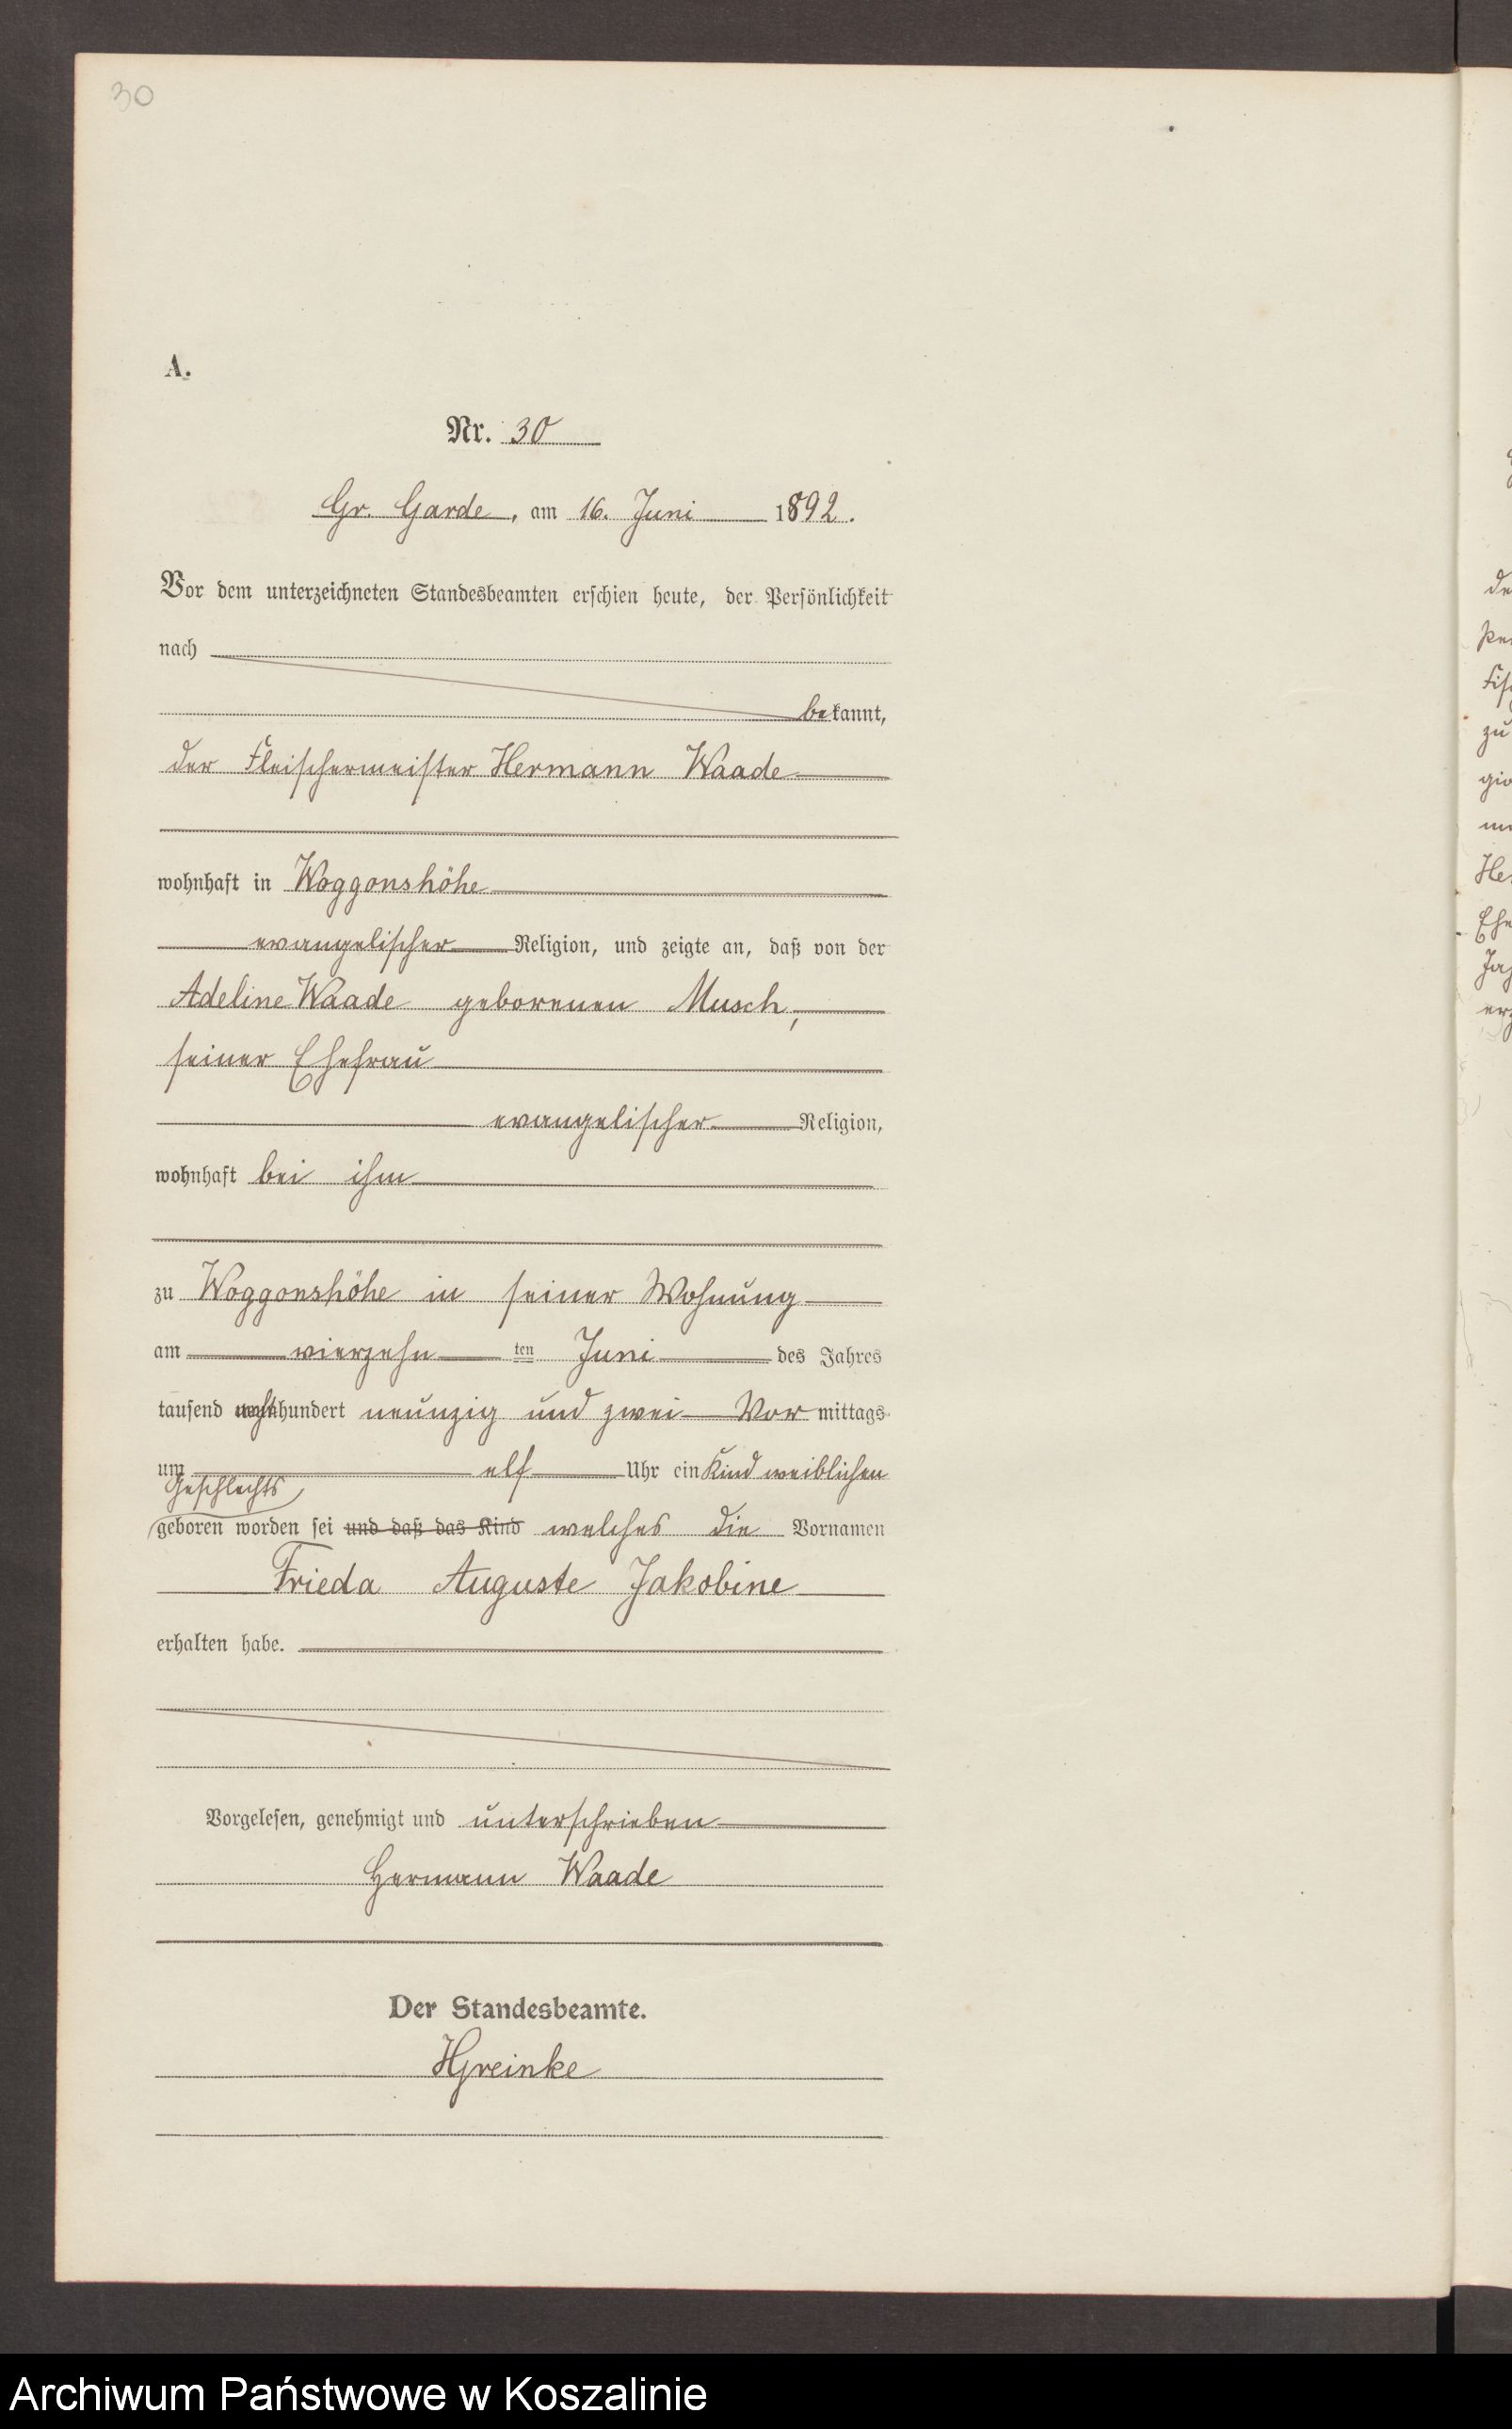 30
A.
Nr. 30
Gr. Garde, am 16. Juni 1892.
Vor dem unterzeichneten Standesbeamten erschien heute, der Persönlichkeit
nach
bekannt,
der Fleischermeister Hermann Waade
wohnhaft in Woggonshöhe
evangelischer Religion, und zeigte an, daß von der
Adeline Waade geborenen Musch,
seiner Ehefrau
evangelischer Religion,
wohnhaft bei ihm
zu Woggonshöhe in seiner Wohnung
am vierzehn ten Juni des Jahres
tausend achthundert neunzig und zwei Vor mittags
um elf Uhr ein Kind weiblichen
Geschlechts
geboren worden sei und daß das Kind welches die Vornamen
Frieda Auguste Jakobine
erhalten habe.
Vorgelesen, genehmigt und unterschrieben
Hermann Waade
Der Standesbeamte.
Archiwum Państwowe w Koszalinie